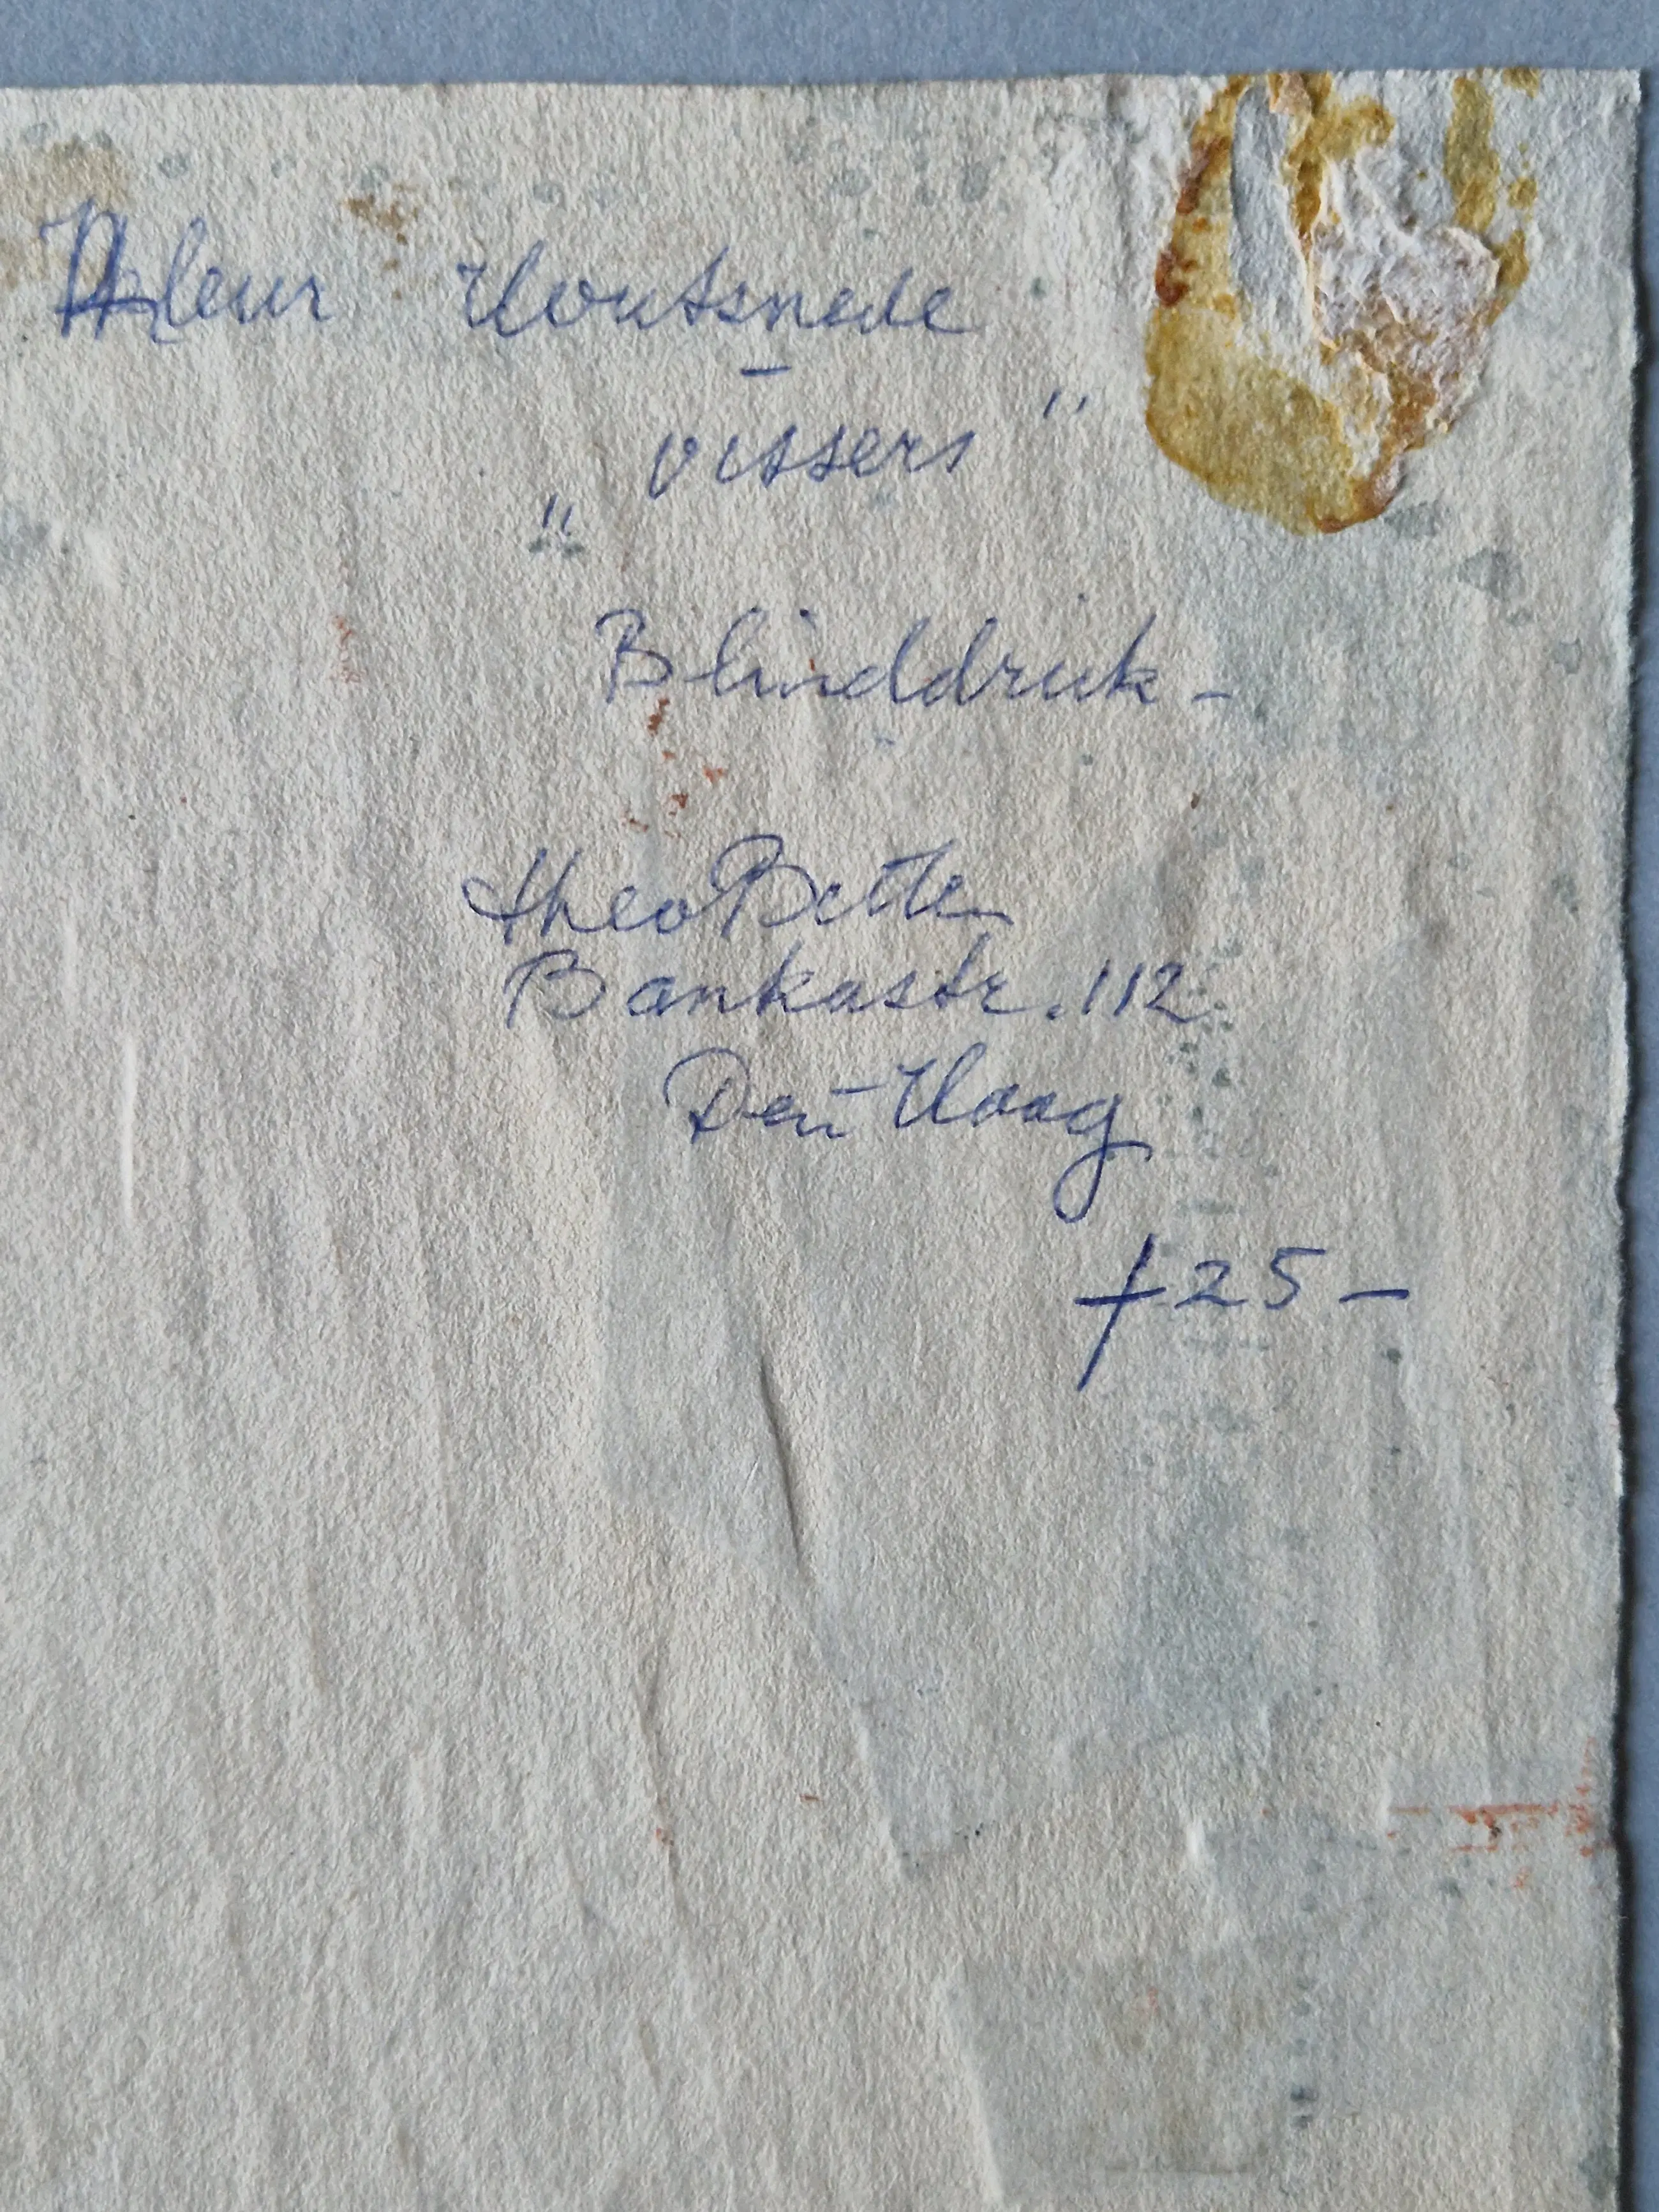 Kleur Houtsnede
–
„ vissers "
Blinddruk -
Theo Bitter
Bankastr. 112
Den Haag
ƒ 25 –